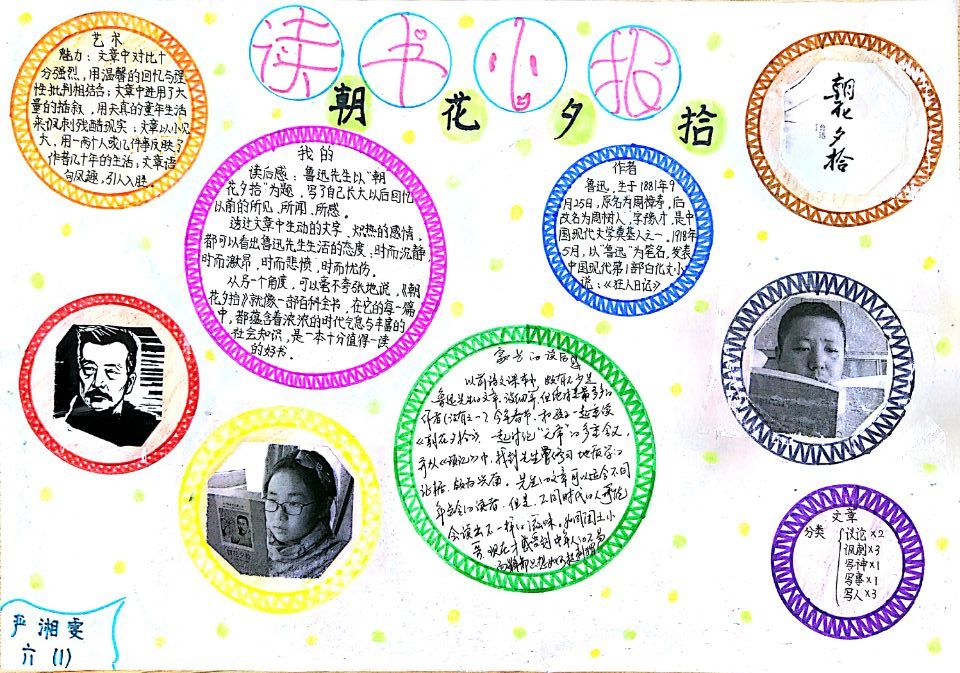 读书小报
朝花夕拾
艺术
魅力：文章中对比十
分强烈，用温馨的回忆与理
性批判相结合；文章中进用了大
量的插叙，用天真的童年生活
来讽刺残酷现实；文章以小见
大，用一两个人或几件事反映了
作者几十年的生活；文章语
句风趣，引人入胜。
我的
读后感：鲁迅先生以“朝
花夕拾”为题，写了自己长大以后回忆
以前的所见、所闻、所感。
透过文章中生动的文字、炽热的感情，
都可以看出鲁迅先生生活的态度，时而沉静，
时而激昂，时而悲愤，时而忧伤。
从另一个角度，可以毫不夸张地说，《朝
花夕拾》就像一部百科全书，在它的每一篇
中，都蕴含着浓浓的时代气息与丰富的
社会知识，是一本十分值得一读
的好书。
作者
鲁迅，生于1881年9
月25日，原名为周樟寿，后
改名为周树人，字豫才，是中
国现代文学奠基人之一。1918年
5月，以“鲁迅”为笔名，发表
中国现代第1部白化文小
说：《狂人日记》
朝花夕拾
鲁迅
家长的读后感
以前语文课本中，
鲁迅先生的文章，
作者（没有之一）今年春节，和孩子一起重读
《朝花夕拾》，一起讨论
先生的文章可以适合不同
年龄的读者，但是，不同时代的人
会读出不一样的滋味。如同闰土
文章
分类
议论×2
讽刺×3
写神×1
写事×1
写人×3
严湘雯
六（1）